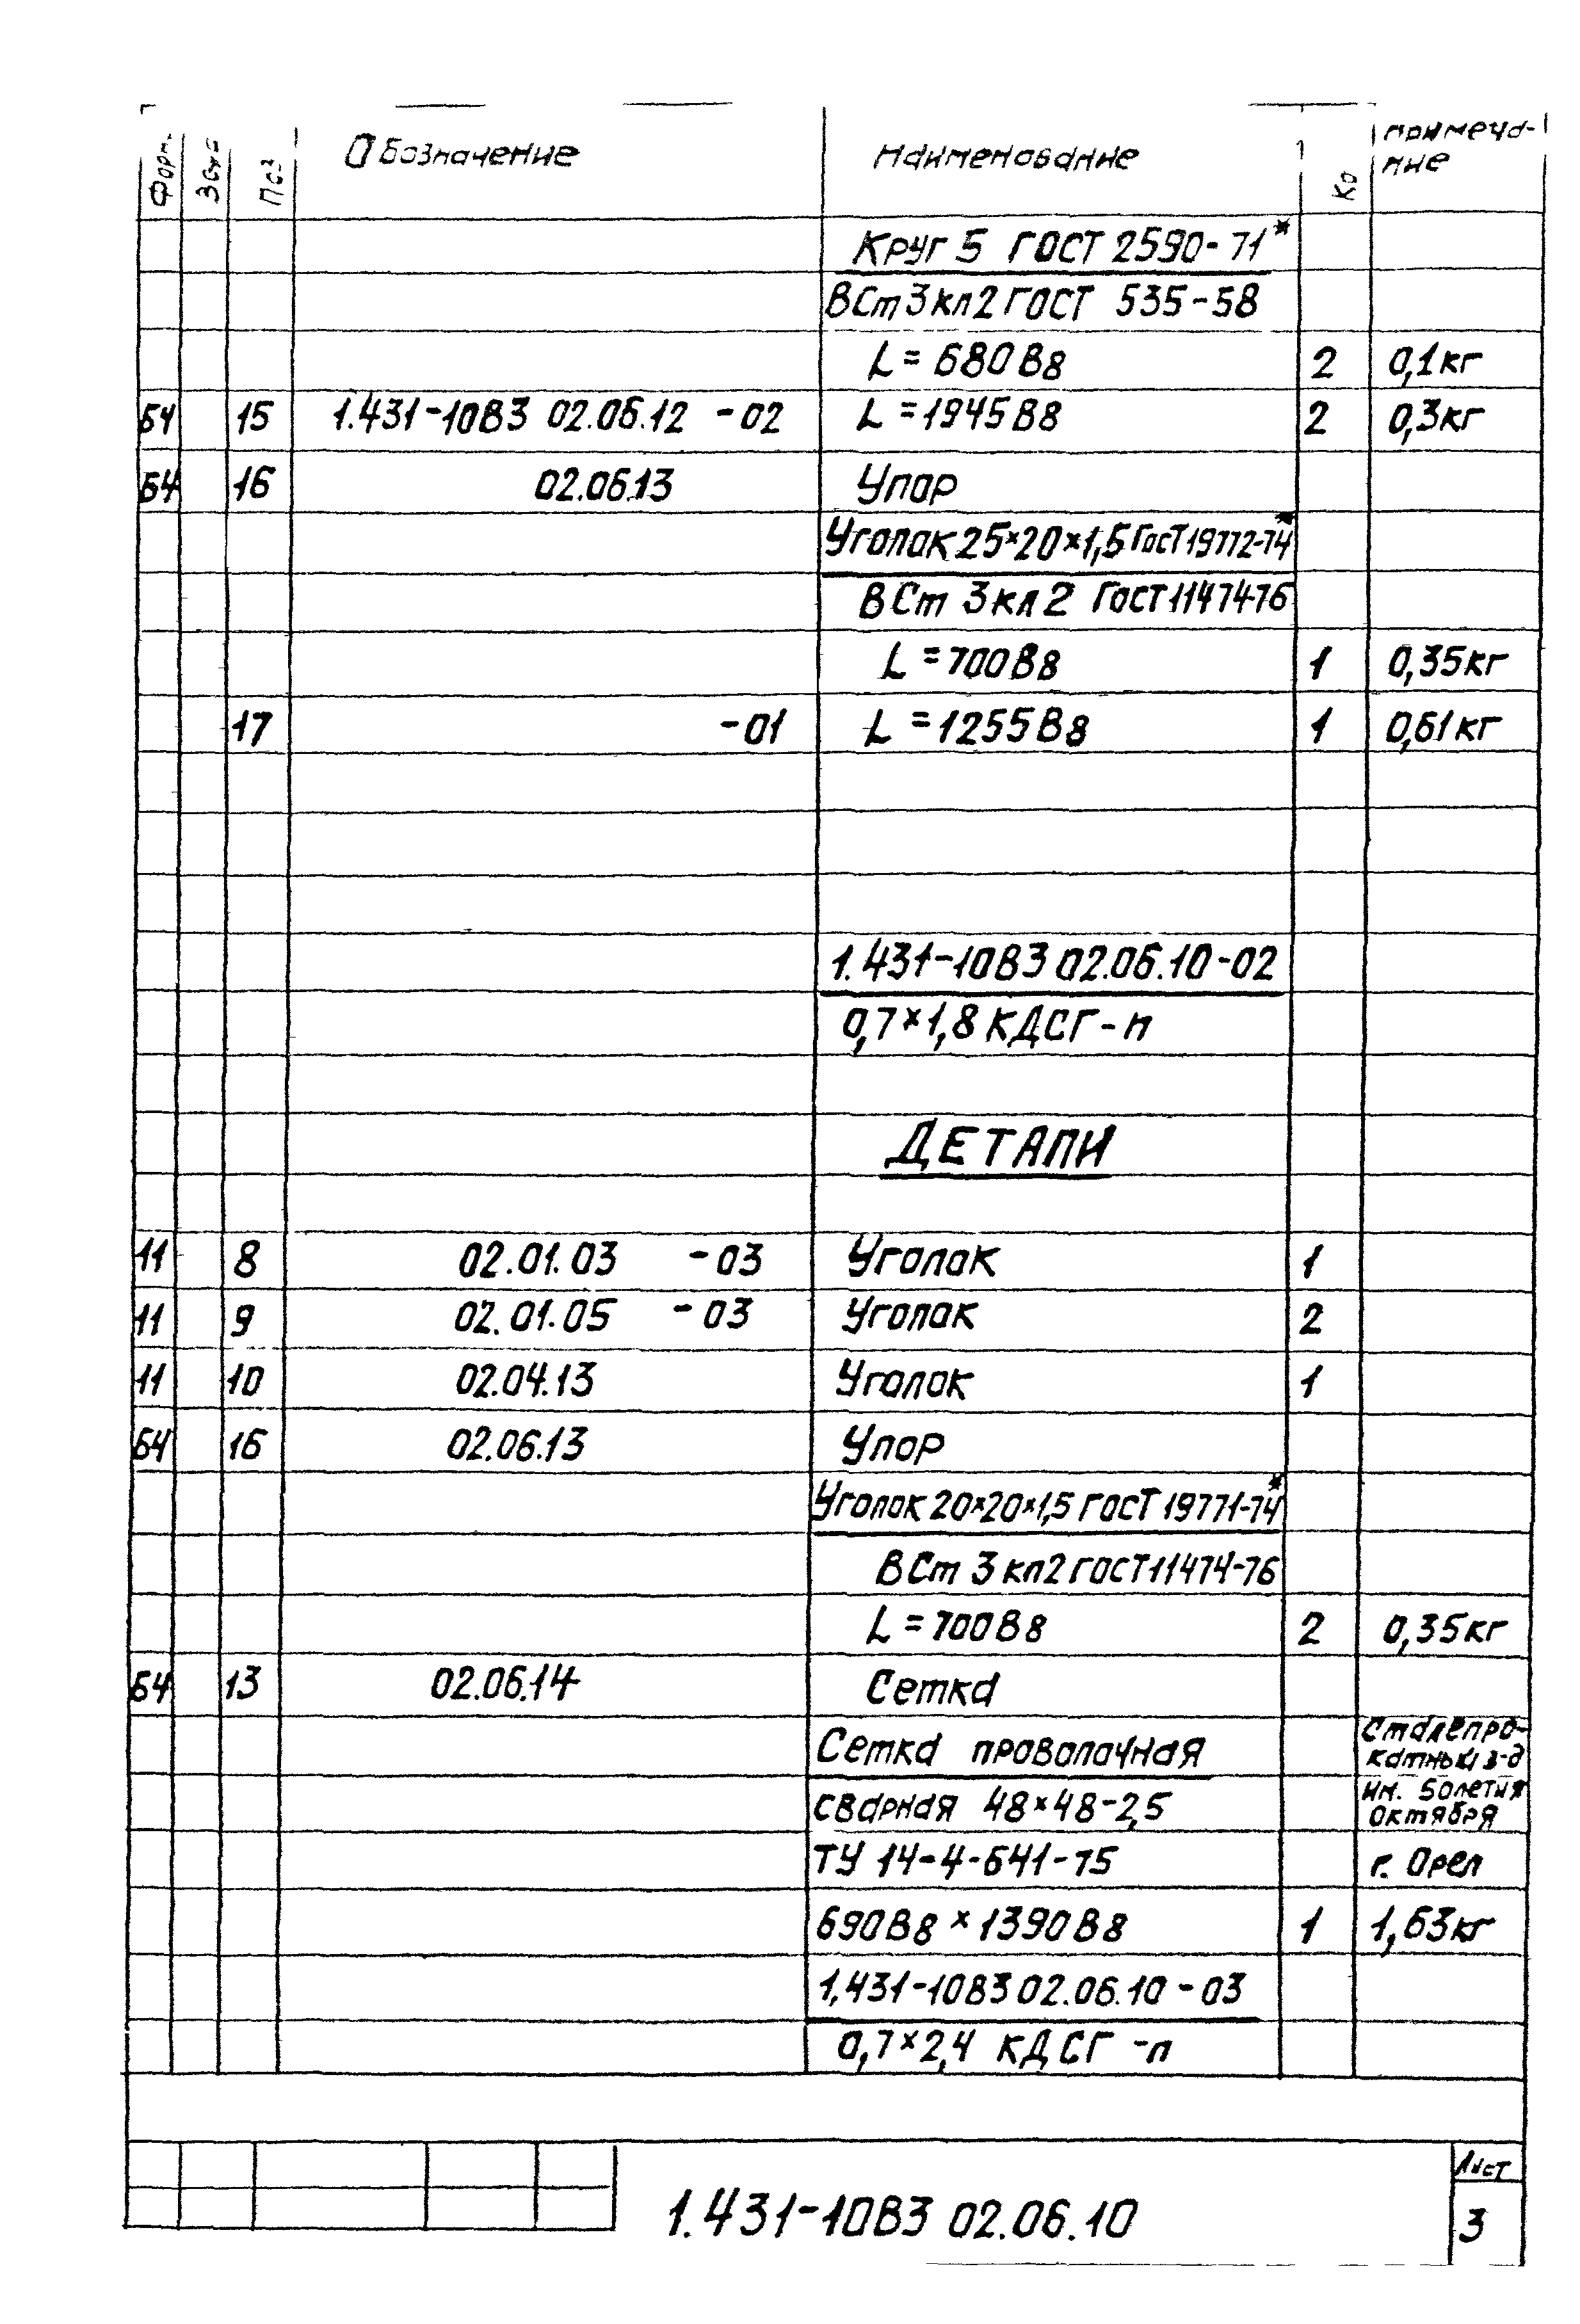 Форм. Зона Поз. Обозначение Наименование Ко Примеча-
ние
Круг 5 ГОСТ 2590-71*
ВСт3кп2 ГОСТ 535-58
L = 680В8 2 0,1кг
БЧ 15 1.431-10В3 02.06.12 -02 L = 1945В8 2 0,3кг
БЧ 16 02.06.13 Упор
Уголок 25×20×1,5 ГОСТ 19772-74*
ВСт 3кп2 ГОСТ 11474-76
L = 700В8 1 0,35кг
17 -01 L = 1255В8 1 0,61кг
1.431-10В3 02.06.10-02
0,7×1,8 КДСГ-п
ДЕТАЛИ
11 8 02.01.03 -03 Уголок 1
11 9 02.01.05 -03 Уголок 2
11 10 02.04.13 Уголок 1
БЧ 16 02.06.13 Упор
Уголок 20×20×1,5 ГОСТ 19771-74*
ВСт 3кп2 ГОСТ 11474-76
L = 700В8 2 0,35кг
БЧ 13 02.06.14 Сетка
Сетка проволочная Сталепро-
катный з-д
сварная 48×48-2,5 им. 50летия
октября
ТУ 14-4-641-75 г. Орел
690В8 × 1390В8 1 1,63кг
1.431-10В3 02.06.10 -03
0,7×2,4 КДСГ -п
1.431-10В3 02.06.10
Лист
3